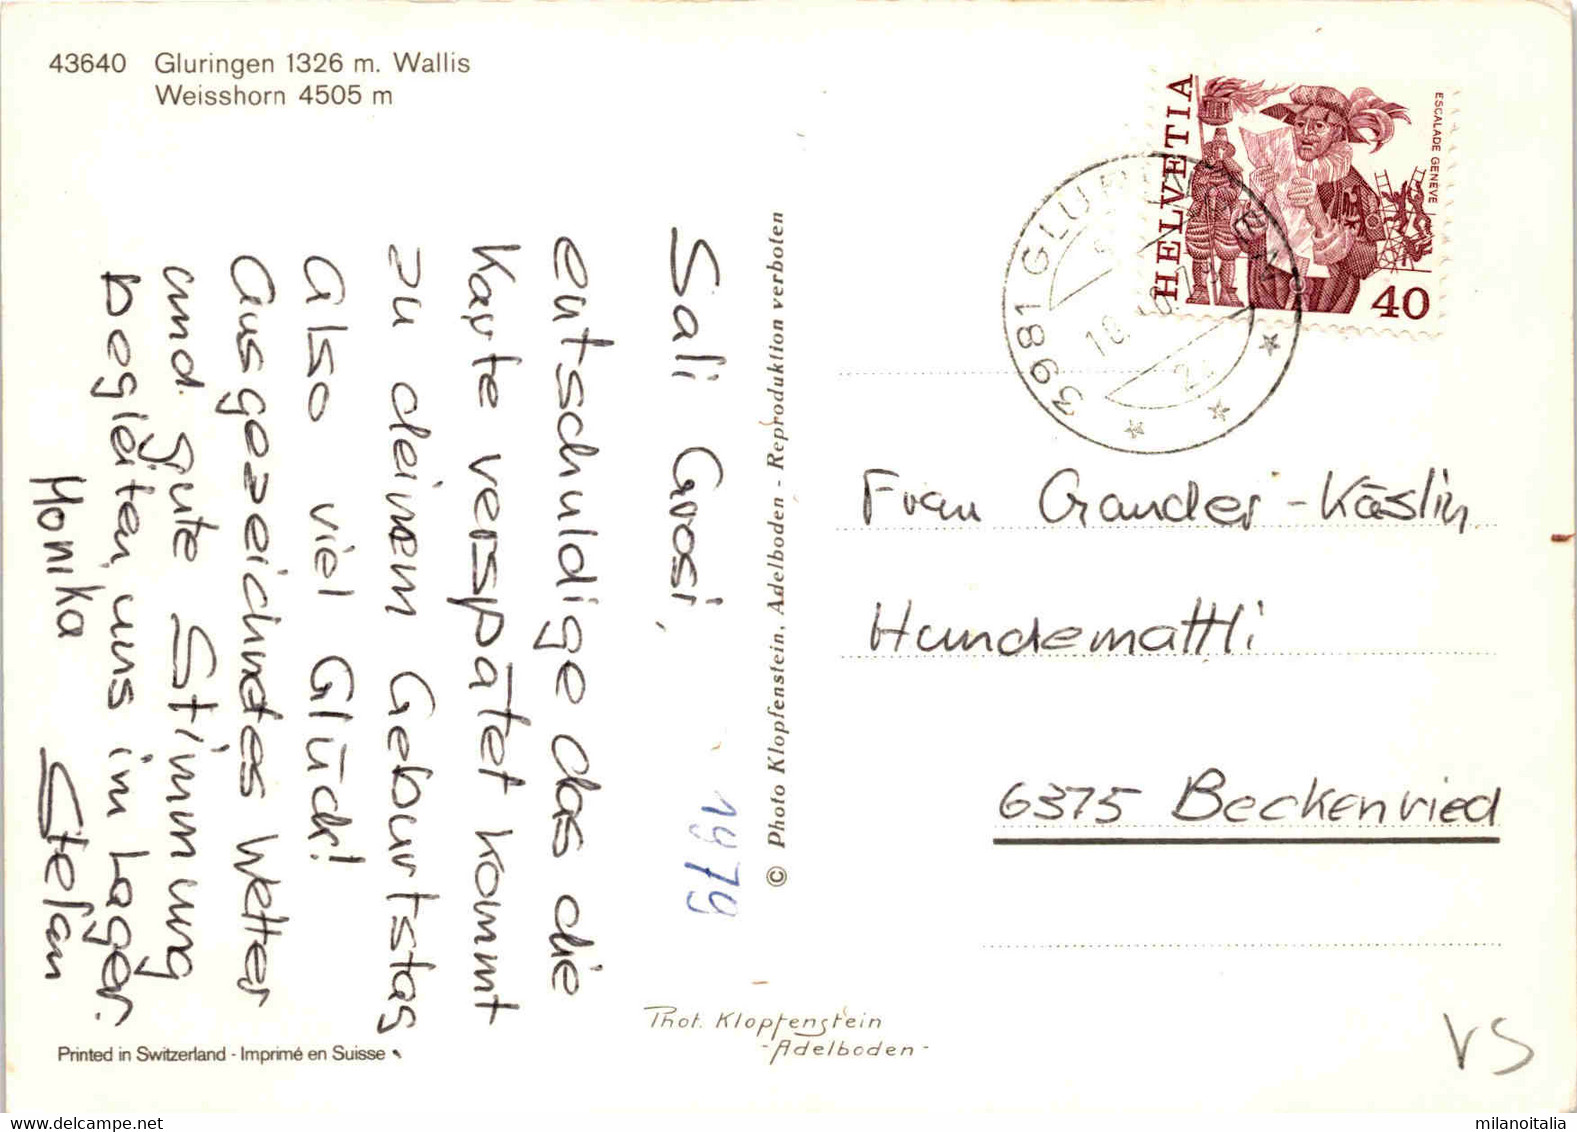 43640 Gluringen 1326 m. Wallis
Weisshorn 4505 m
Sali Grosi,
entschuldige das die
Karte verspätet kommt
zu deinem Geburtstag
Also viel Glück!
Ausgezeichnetes Wetter
und gute Stimmung
begleiten uns im Lager.
Monika Stefan
1979
Printed in Switzerland - Imprimé en Suisse
© Photo Klopfenstein, Adelboden - Reproduktion verboten
Phot. Klopfenstein
-Adelboden-
HELVETIA
ESCALADE GENÈVE
40
3981 GLURINGEN
Frau Gander-Käslin
Hundemattli
6375 Beckenried
VS
milanoitalia